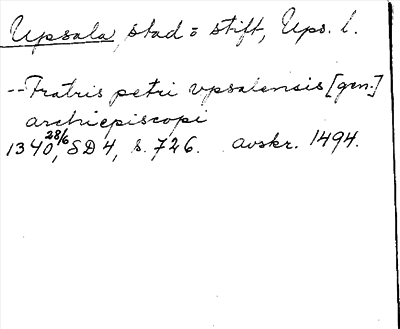 Upsala, stad = stift, Ups. l.
-- Fratris petri vpsalensis [gen.]
archiepiscopi
1340 28/6, SD 4, s. 726. avskr. 1494.